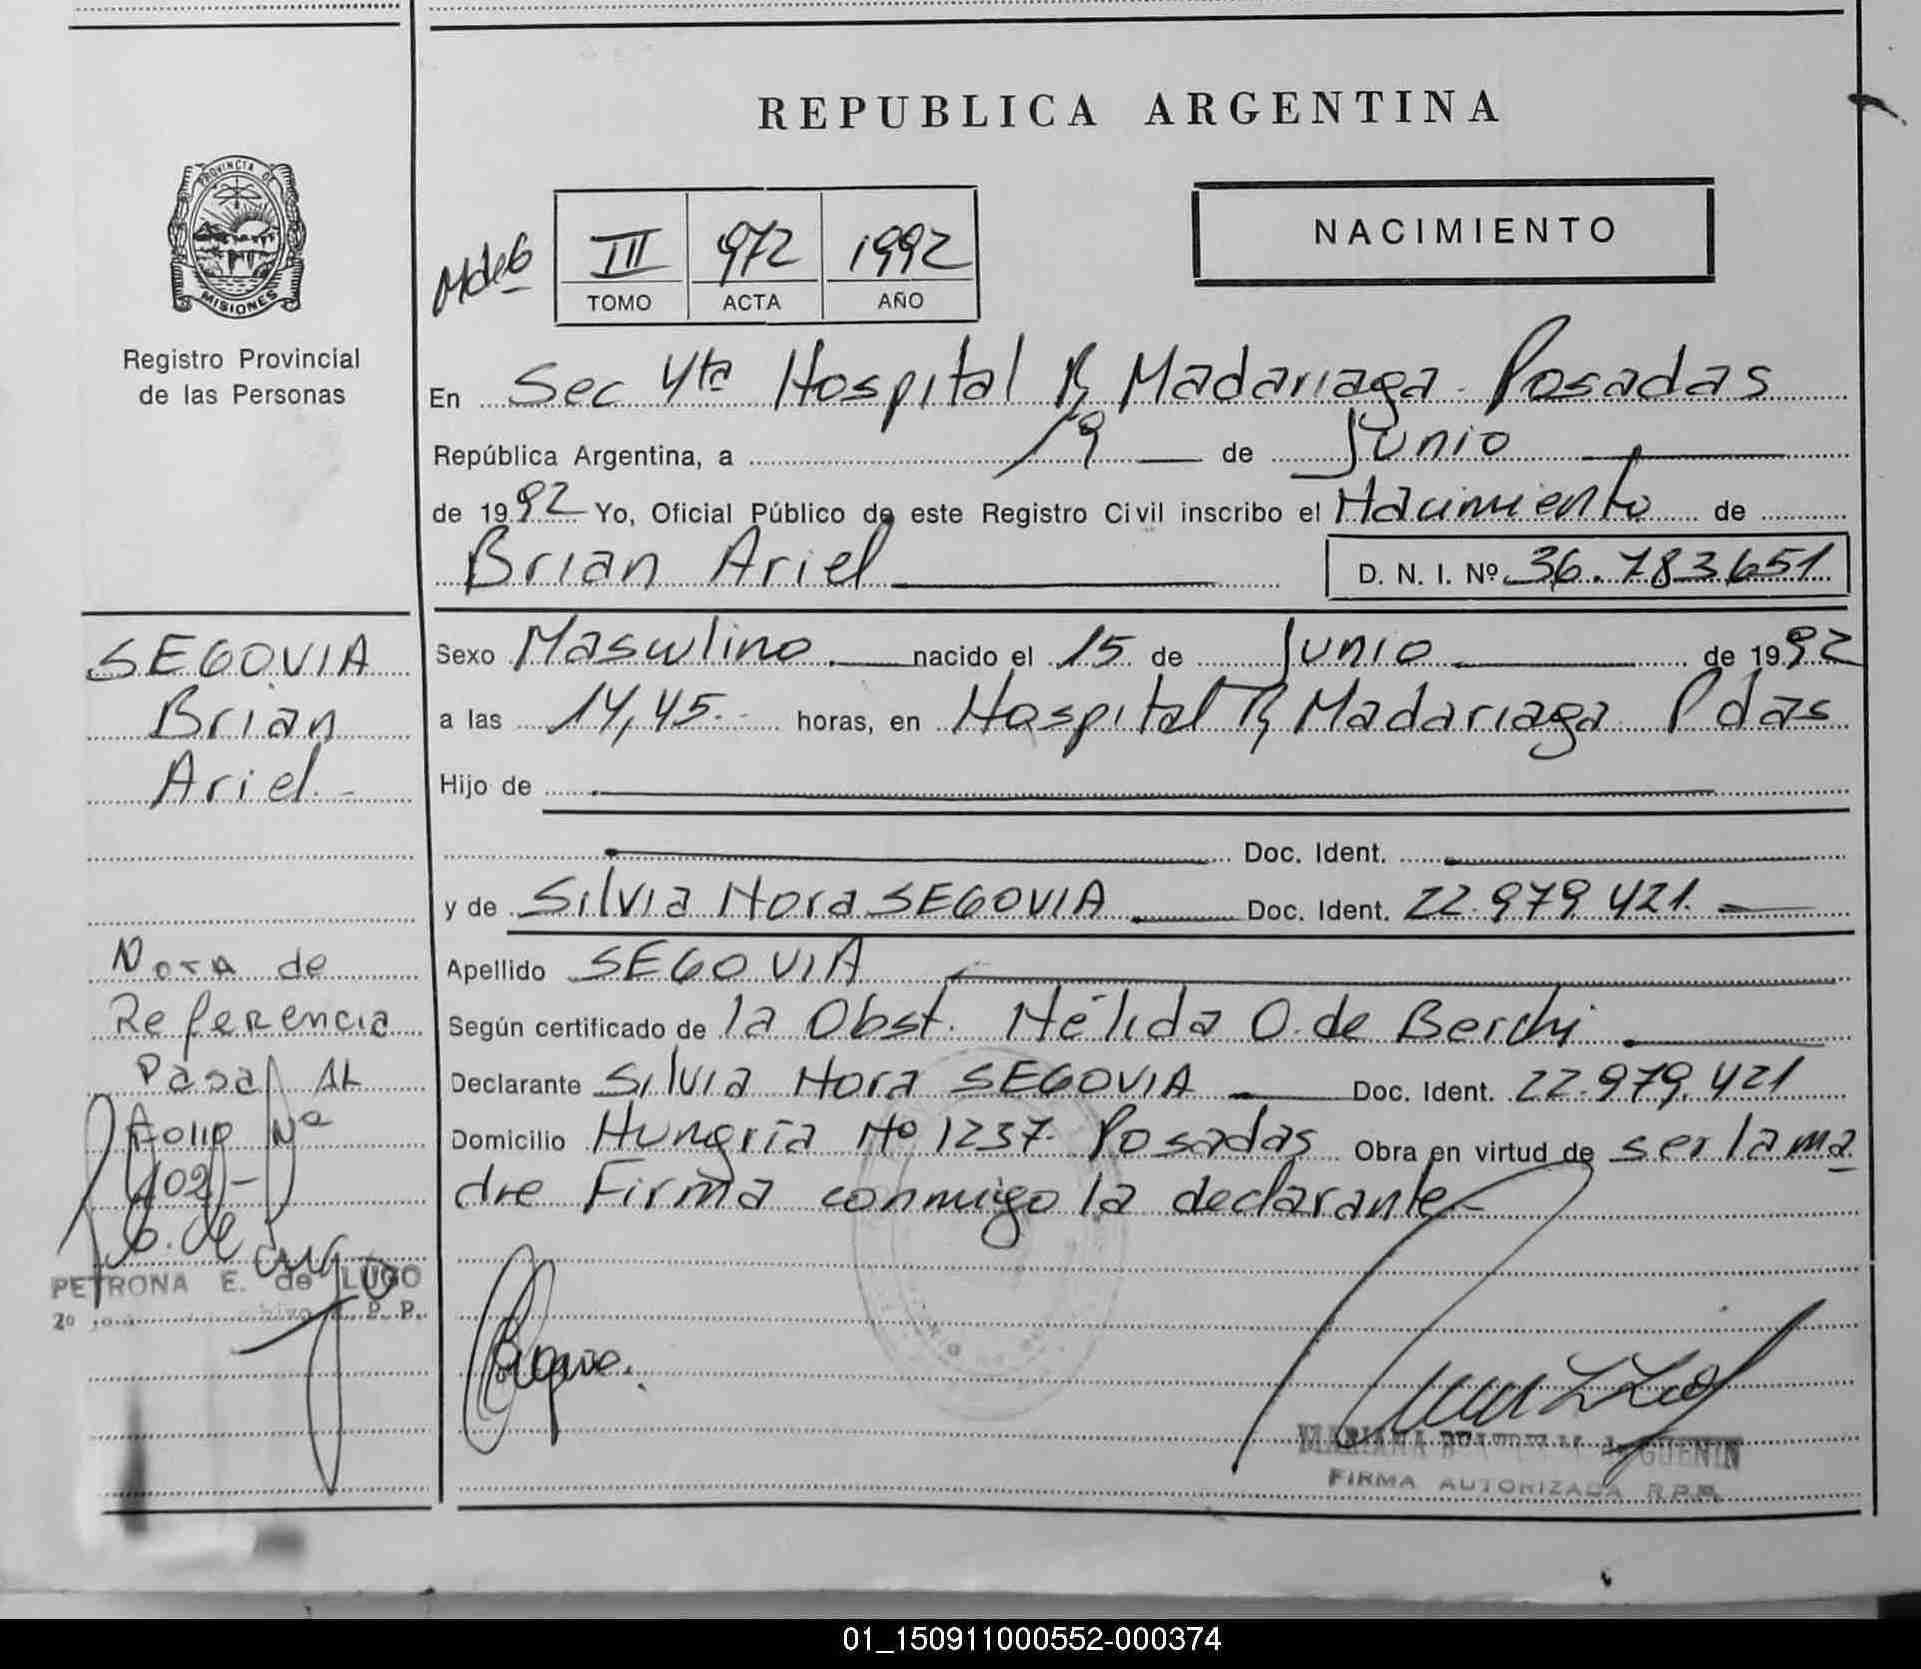 REPUBLICA ARGENTINA
PROVINCIA DE
MISIONES
Registro Provincial
de las Personas
NACIMIENTO
III 972 1992
TOMO ACTA AÑO
En Sec 4ta Hospital R Madariaga Posadas
República Argentina, a 19 de Junio
de 1992 Yo, Oficial Público de este Registro Civil inscribo el Nacimiento de
Brian Ariel D. N. I. Nº 36.783651
SEGOVIA
Brian
Ariel
Sexo Masculino nacido el 15 de Junio de 1992
a las 14,45 horas, en Hospital R Madariaga Pdas
Hijo de
Doc. Ident.
y de Silvia Nora SEGOVIA Doc. Ident. 22.979.421.
Apellido SEGOVIA
Según certificado de la Obst. Nélida O. de Berchi
Declarante Silvia Nora SEGOVIA Doc. Ident. 22.979.421
Domicilio Hungría Nº 1237. Posadas Obra en virtud de ser la ma
dre Firma conmigo la declarante
Nota de
Referencia
Pasa AL
Folio Nº
102
PETRONA E. de LUGO
MARIANA GUENIN
FIRMA AUTORIZADA R.P.P.
01_150911000552-000374